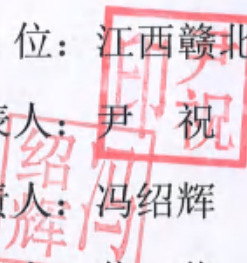 位：江西赣北
表人：尹 祝
责人：冯绍辉
尹祝印
冯绍辉